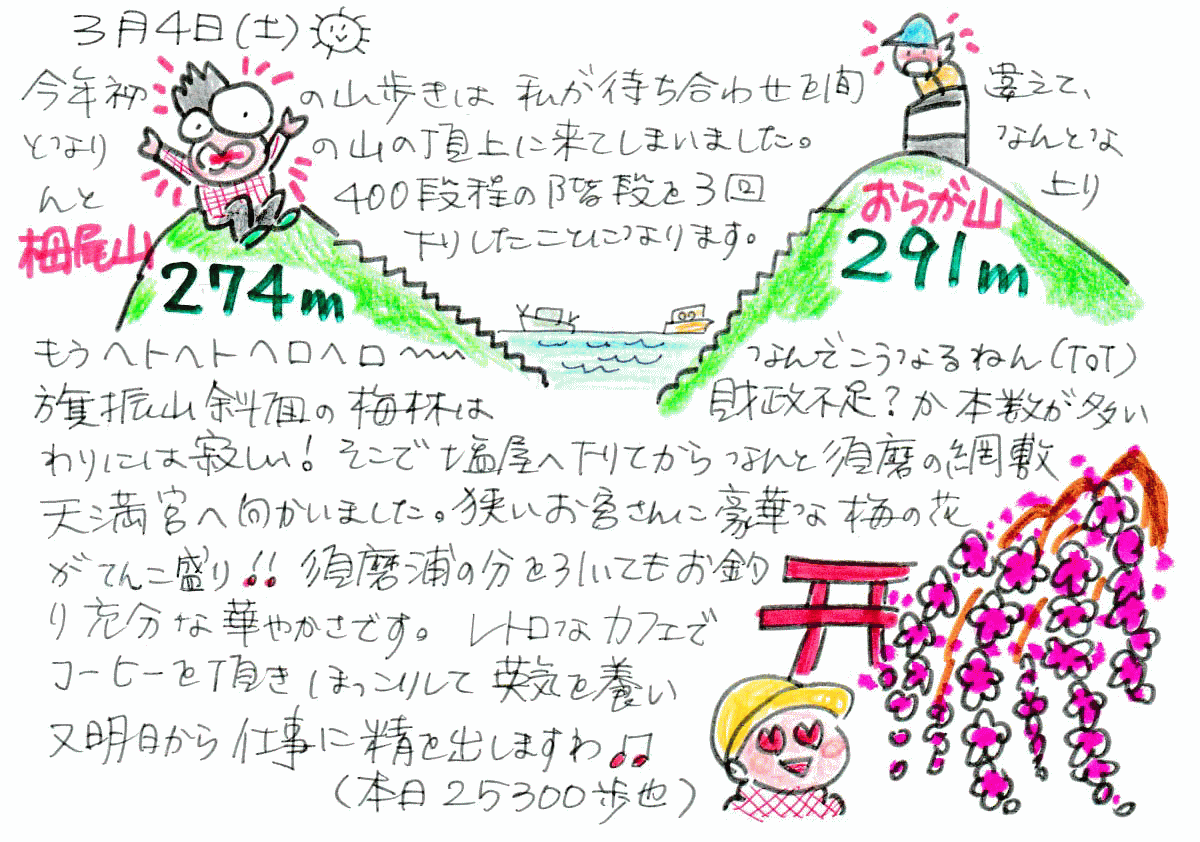 3月4日(土)
今年初の山歩きは 私が待ち合わせを間違えて、
となりの山の頂上に来てしまいました。なんとな
んと 400段程の階段を3回上り
下りしたことになります。
栂尾山 274m
おらが山 291m
もうヘトヘトヘロヘロ〜 なんでこうなるねん(ToT)
旗振山斜面の梅林は 財政不足?か本数が多い
わりには寂しい!そこで塩屋へ下りてからなんと須磨の綱敷
天満宮へ向かいました。狭いお宮さんに豪華な梅の花
がてんこ盛り!!須磨浦の分を引いてもお釣
り充分な華やかさです。レトロなカフェで
コーヒーを頂きほっこりして英気を養い
又明日から仕事に精を出しますわ♫
(本日25300歩也)